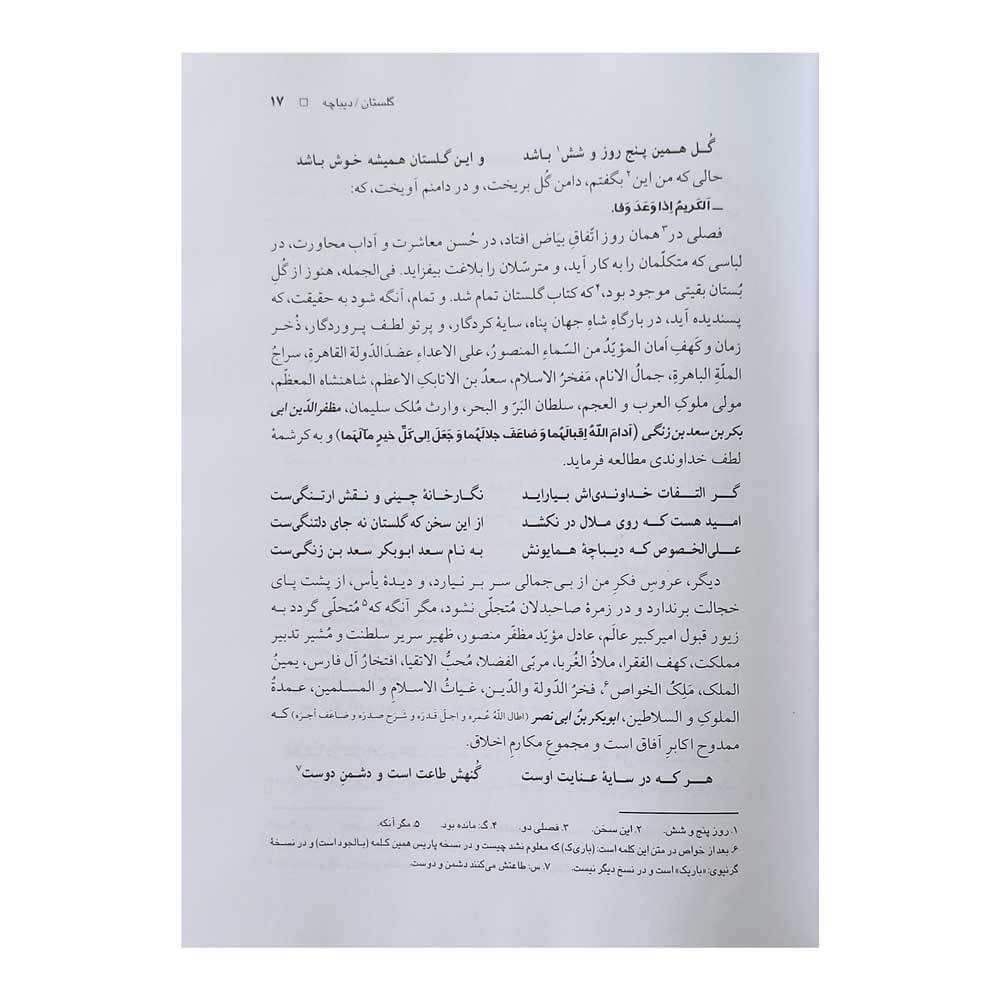 گلستان / دیباچه □ ۱۷
گُل همین پنج روز و شش۱ باشد و این گلستان همیشه خوش باشد
حالی که من این۲ بگفتم، دامن گُل بریخت، و در دامنم آویخت، که:
ــ اَلکَریمُ اِذا وَعَدَ وَفا.
فصلی در۳ همان روز اتّفاقِ بیَاض افتاد، در حُسن معاشرت و آداب محاورت، در
لباسی که متکلّمان را به کار آید، و مترسّلان را بلاغت بیفزاید. فی‌الجمله، هنوز از گُلِ
بُستان بقیتی موجود بود،۴ که کتاب گلستان تمام شد. و تمام، آنگه شود به حقیقت، که
پسندیده آید، در بارگاهِ شاهِ جهان پناه، سایهٔ کردگار، و پرتو لطف پروردگار، ذُخر
زمان و کَهفِ اَمان المؤیّدُ من السّماءِ المنصورُ، علی الاعداءِ عضدَالدّولة القاهرةِ، سراجُ
الملّةِ الباهرةِ، جمالُ الانام، مَفخرُ الاسلام، سعدُ بن الاتابکِ الاعظم، شاهنشاه المعظّم،
مولی ملوکِ العرب و العجم، سلطان البَرّ و البحر، وارث مُلک سلیمان، مظفرالدّین ابی
بکر بن سعد بن زنگی (اَدامَ اللّهُ اِقبالَهُما وَ ضاعَفَ جلالَهُما وَ جَعَلَ اِلی کَلّ خیرِ مآلَهما) و به کرشمهٔ
لطف خداوندی مطالعه فرماید.
گر التفات خداوندی‌اش بیاراید نگارخانهٔ چینی و نقش ارتنگی‌ست
امید هست که روی ملال در نکشد از این سخن که گلستان نه جای دلتنگی‌ست
علی‌الخصوص که دیباچهٔ همایونش به نام سعد ابوبکر سعد بن زنگی‌ست
دیگر، عَروسِ فکرِ من از بی‌جمالی سر بر نیارد، و دیدهٔ یأس، از پشت پای
خجالت برندارد و در زمرهٔ صاحبدلان مُتجلّی نشود، مگر آنگه که۵ مُتحلّی گردد به
زیور قبول امیرکبیر عالَم، عادل مؤیّد مظفّر منصور، ظهیر سریر سلطنت و مُشیر تدبیر
مملکت، کهف الفقرا، ملاذُ الغُربا، مربّی الفضلا، مُحبُّ الاتقیا، افتخارُ آل فارس، یمینُ
الملک، مَلِکُ الخواص۶، فخرُ الدّولة والدّین، غیاثُ الاسلامِ و المسلمین، عمدةُ
الملوکِ و السلاطین، ابوبکر بنُ ابی نصر (اطال اللّهُ عُمره و اجلّ قَدرَه و شَرَح صدرَه و ضاعَف اَجرَه) که
ممدوح اکابرِ آفاق است و مجموعِ مکارمِ اخلاق.
هر که در سایهٔ عنایت اوست گُنهش طاعت است و دشمنِ دوست۷
۱. روز پنج و شش. ۲. این سخن. ۳. فصلی دو. ۴. گ: مانده بود. ۵. مگر آنکه.
۶. بعد از خواص در متن این کلمه است: (باریک) که معلوم نشد چیست و در نسخه پاریس همین کلمه (بالجود است) و در نسخهٔ
گرنیوی: «باریک» است و در نسخ دیگر نیست. ۷. س: طاعتش می‌کنند دشمن و دوست.